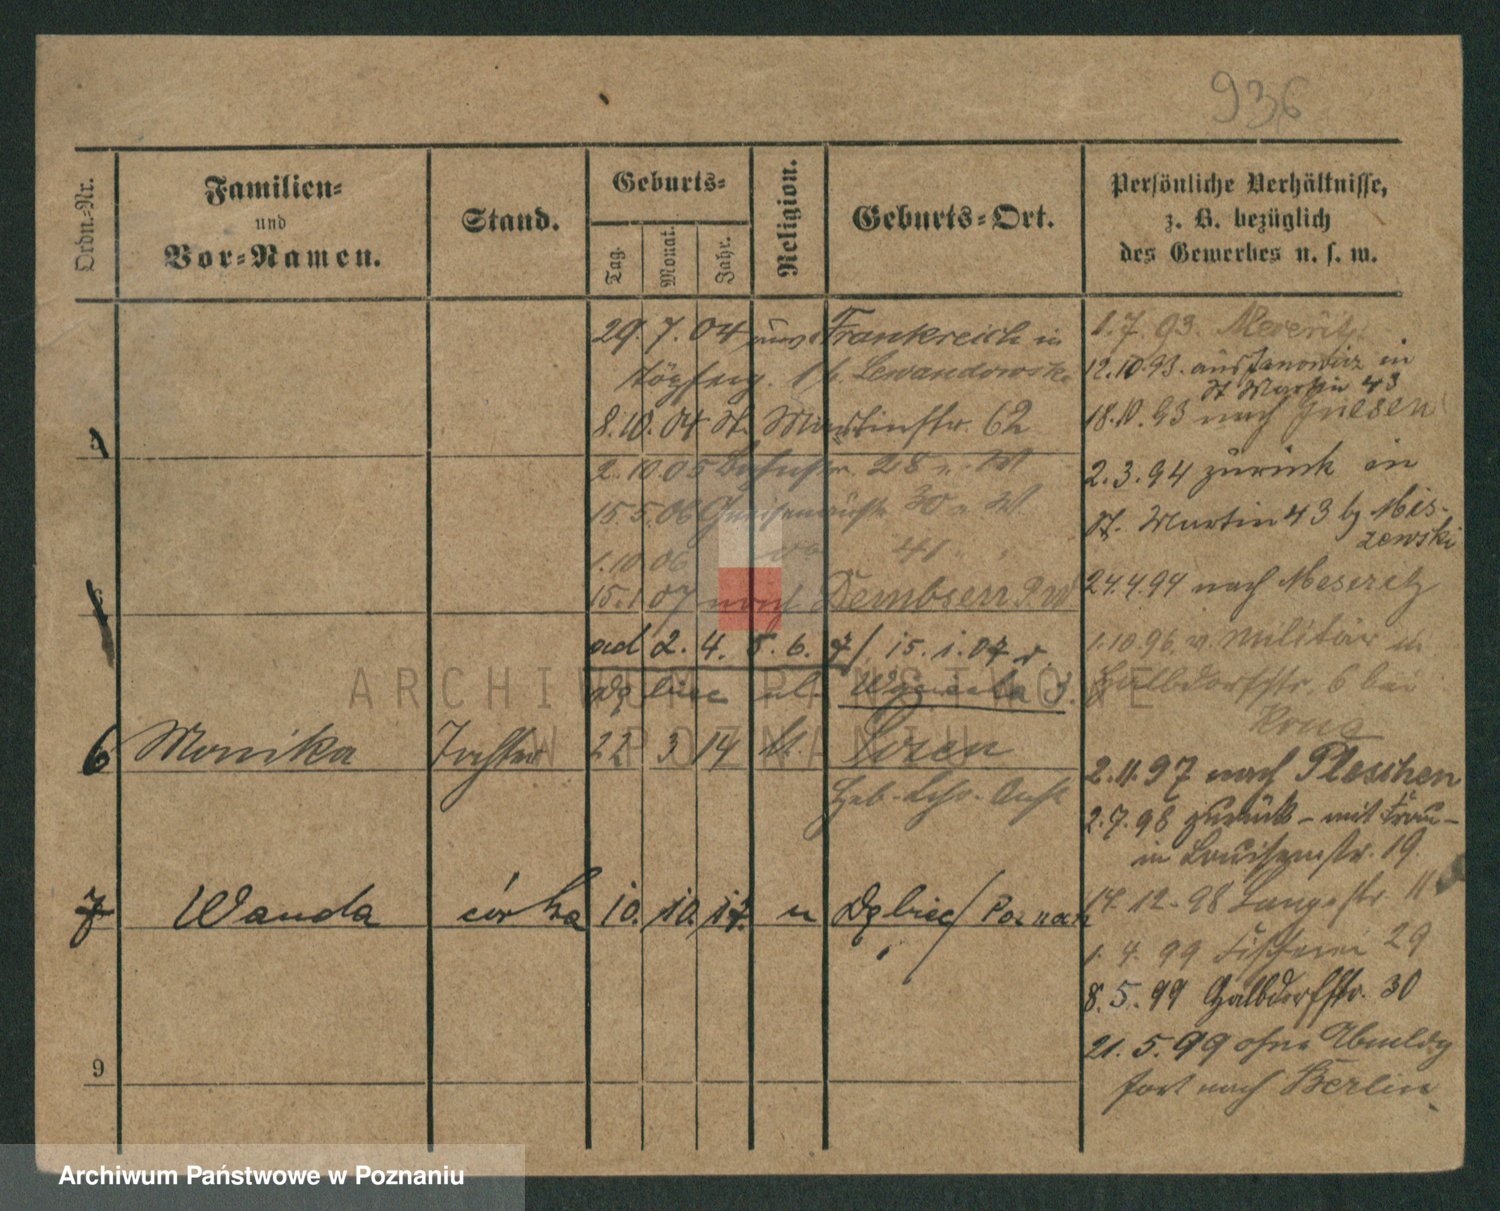 936
Ordn.-Nr.
Familien-
und
Vor-Namen.
Stand.
Geburts-
Tag.
Monat.
Jahr.
Religion.
Geburts-Ort.
Persönliche Verhältnisse,
z. B. bezüglich
des Gewerbes u. s. w.
29. 7. 04 aus Frankreich in
Lewandowski
8.10.04 St. Martinstr. 62
2.10.05 28
15.5.06 Gneisenaustr. 30
1.10.06 41
15.1.07 nach Dembsen P. W
ad 2. 4. 5. 6. 7/ 15. 1. 07
Dębiec ul.
6 Monika Tochter 22 3 14 k. Posen
Heb. Lehr. Anst
7 Wanda córka 10. 10. 17. " Dębiec/Poznań
9
1.7.93. Meseritz
12.10.93. aus Janowitz in
St Martin 43
18.10.93 nach Gnesen
2.3.94 zurück in
St. Martin 43 b/ Mis-
zewski
24.4.94 nach Meseritz
1.10.96 v. Militär in
Halbdorfstr. 6 bei
2.11.97 nach Pleschen
2.7.98 zurück - mit Frau -
in Louisenstr. 19.
14.12.98 Langestr. 11
1. 4. 99 Fischerei 29
8.5.99 Halbdorfstr. 30
21.5.99 ohne Abmeldg
fort nach Berlin.
ARCHIWUM PAŃSTWOWE
W POZNANIU
Archiwum Państwowe w Poznaniu